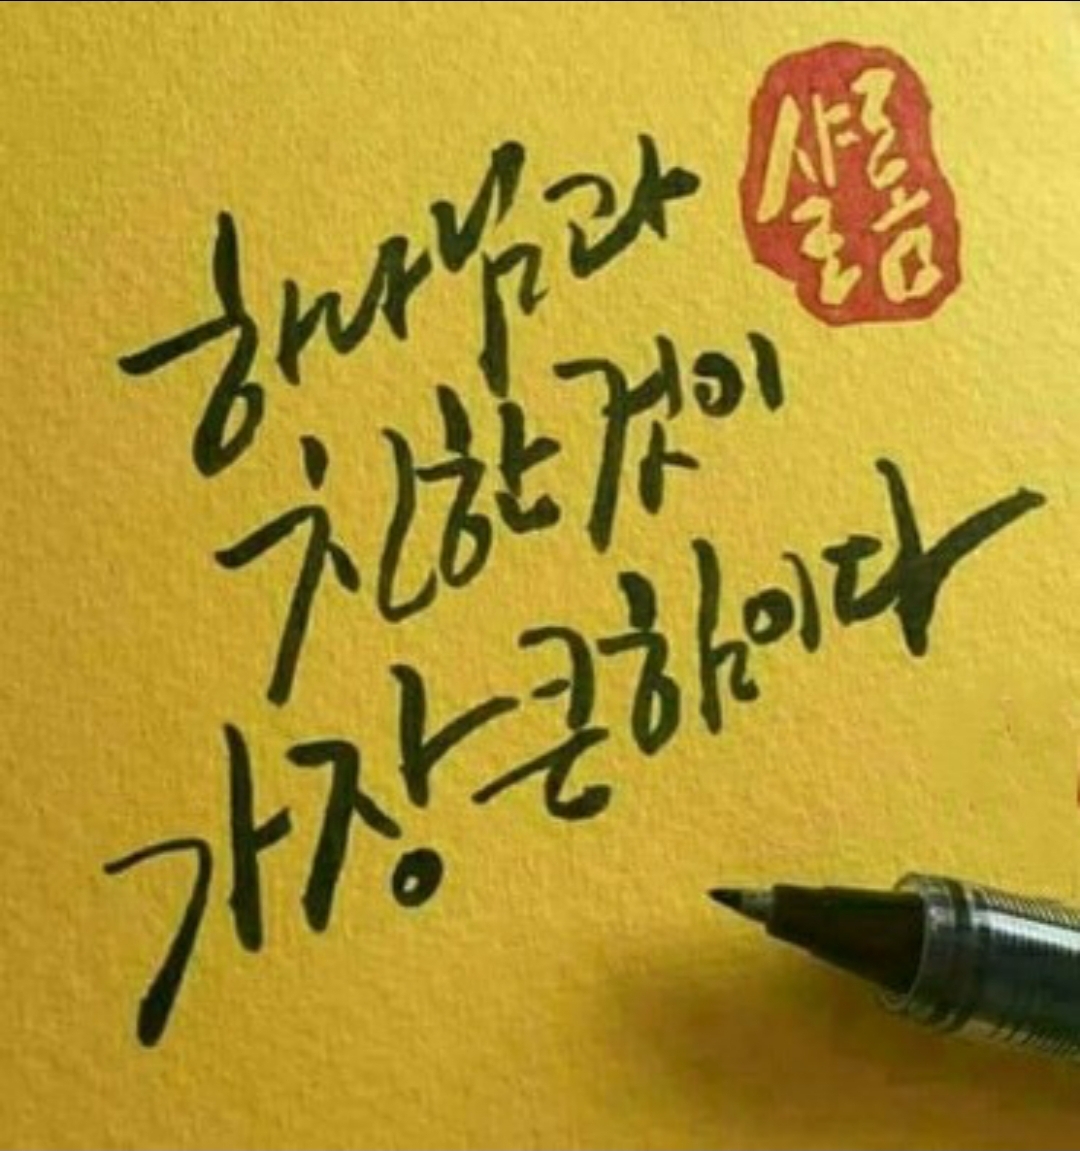 하나님과
친한 것이
가장 큰 힘이다